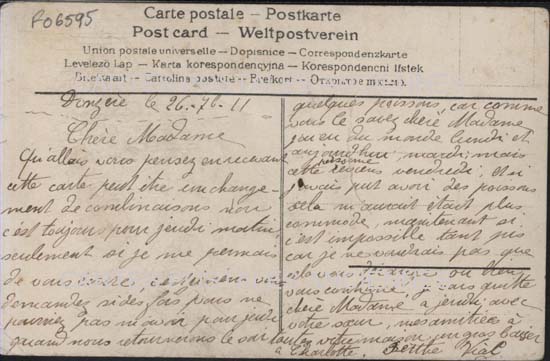 F06595
Carte postale – Postkarte
Post card – Weltpostverein
Union postale universelle – Dopisnice – Correspondenzkarte
Levelező Lap – Karta korespondencyjna – Korespondencni listek
Briefkaart – Cartolina postale – Brefkort – Открытое письмо
le 26 - 11
Chère Madame
Qu'allez vous pensez en recevant
cette carte peut être un change-
ment de combinaisons non
c'est toujours pour jeudi matin
seulement si je me permais
de vous c'est pour vous
demandez si des fois vous ne
pourriez pas m'avoir pour jeudi
quand nous retournerons le soir
quelques poissons, car comme
vous le savez chère Madame
j'ai eu du monde lundi et
aujourd'hui mardi; mais
cette personne reviens vendredi, et si
j'avais put avoir des poissons
cela m'aurait était plus
commode, maintenant si
c'est impossible tant pis
car je ne voudrais pas que
cela vous ou bien
vous je vais quitte
chère Madame à jeudi avec
votre sœur, mes amitiées à
toute votre maison, un gros baiser
à Charlotte. Berthe Vial